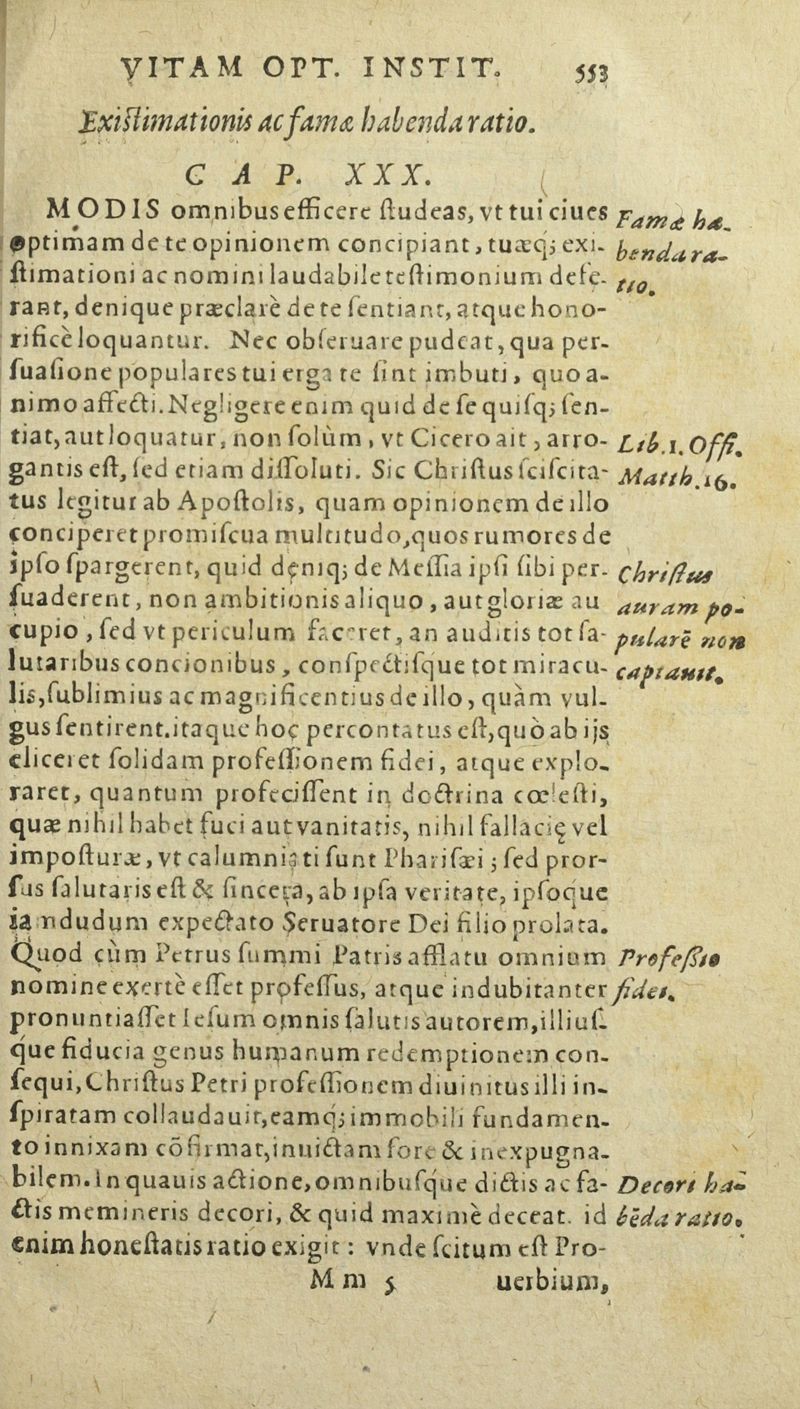 VITAM OPT. INSTIT. 553
Exiſtimationis ac famæ habenda ratio.
CAP. XXX.
MODIS omnibus efficere ſtudeas, vt tui ciues
optimam de te opinionem concipiant, tuæq; exi-
ſtimationi ac nomini laudabile teſtimonium defe-
rant, denique præclarè de te ſentiant, atque hono-
rificè loquantur. Nec obſeruare pudeat, qua per-
ſuaſione populares tui erga te ſint imbuti, quo a-
nimo affecti. Negligere enim quid de ſe quiſq; ſen-
tiat, aut loquatur, non ſolùm, vt Cicero ait, arro-
gantis eſt, ſed etiam diſſoluti. Sic Chriſtus ſciſcita-
tus legitur ab Apoſtolis, quam opinionem de illo
conciperet promiſcua multitudo, quos rumores de
ipſo ſpargerent, quid deniq; de Meſſia ipſi ſibi per-
ſuaderent, non ambitionis aliquo, aut gloriæ au
cupio, ſed vt periculum faceret, an auditis tot ſa-
lutaribus concionibus, conſpectiſque tot miracu-
lis, ſublimius ac magnificentius de illo, quàm vul-
gus ſentirent. itaque hoc percontatus eſt, quò ab ijs
eliceret ſolidam profeſſionem fidei, atque explo-
raret, quantum profeciſſent in doctrina cœleſti,
quæ nihil habet fuci aut vanitatis, nihil fallacię vel
impoſturæ, vt calumniati ſunt Phariſæi; ſed pror-
ſus ſalutaris eſt & ſincera, ab ipſa veritate, ipſoque
iamdudum expectato Seruatore Dei filio prolata.
Quod cùm Petrus ſummi Patris afflatu omnium
nomine exertè eſſet profeſſus, atque indubitanter
pronuntiaſſet Ieſum omnis ſalutis autorem, illiuſ-
que fiducia genus humanum redemptionem con-
ſequi, Chriſtus Petri profeſſionem diuinitus illi in-
ſpiratam collaudauit, eamq; immobili fundamen-
to innixam cõfirmat, inuictam fore & inexpugna-
bilem. In quauis actione, omnibuſque dictis ac fa-
ctis memineris decori, & quid maximè deceat. id
enim honeſtatis ratio exigit: vnde ſcitum eſt Pro-
Mm 5 uerbium,
Famæ ha-
benda ra-
tio.
Lib. 1. Offi.
Matth. 16.
Chriſtus
auram po-
pularē non
captauit.
Profeſſio
fidei.
Decori ha-
bēda ratio.